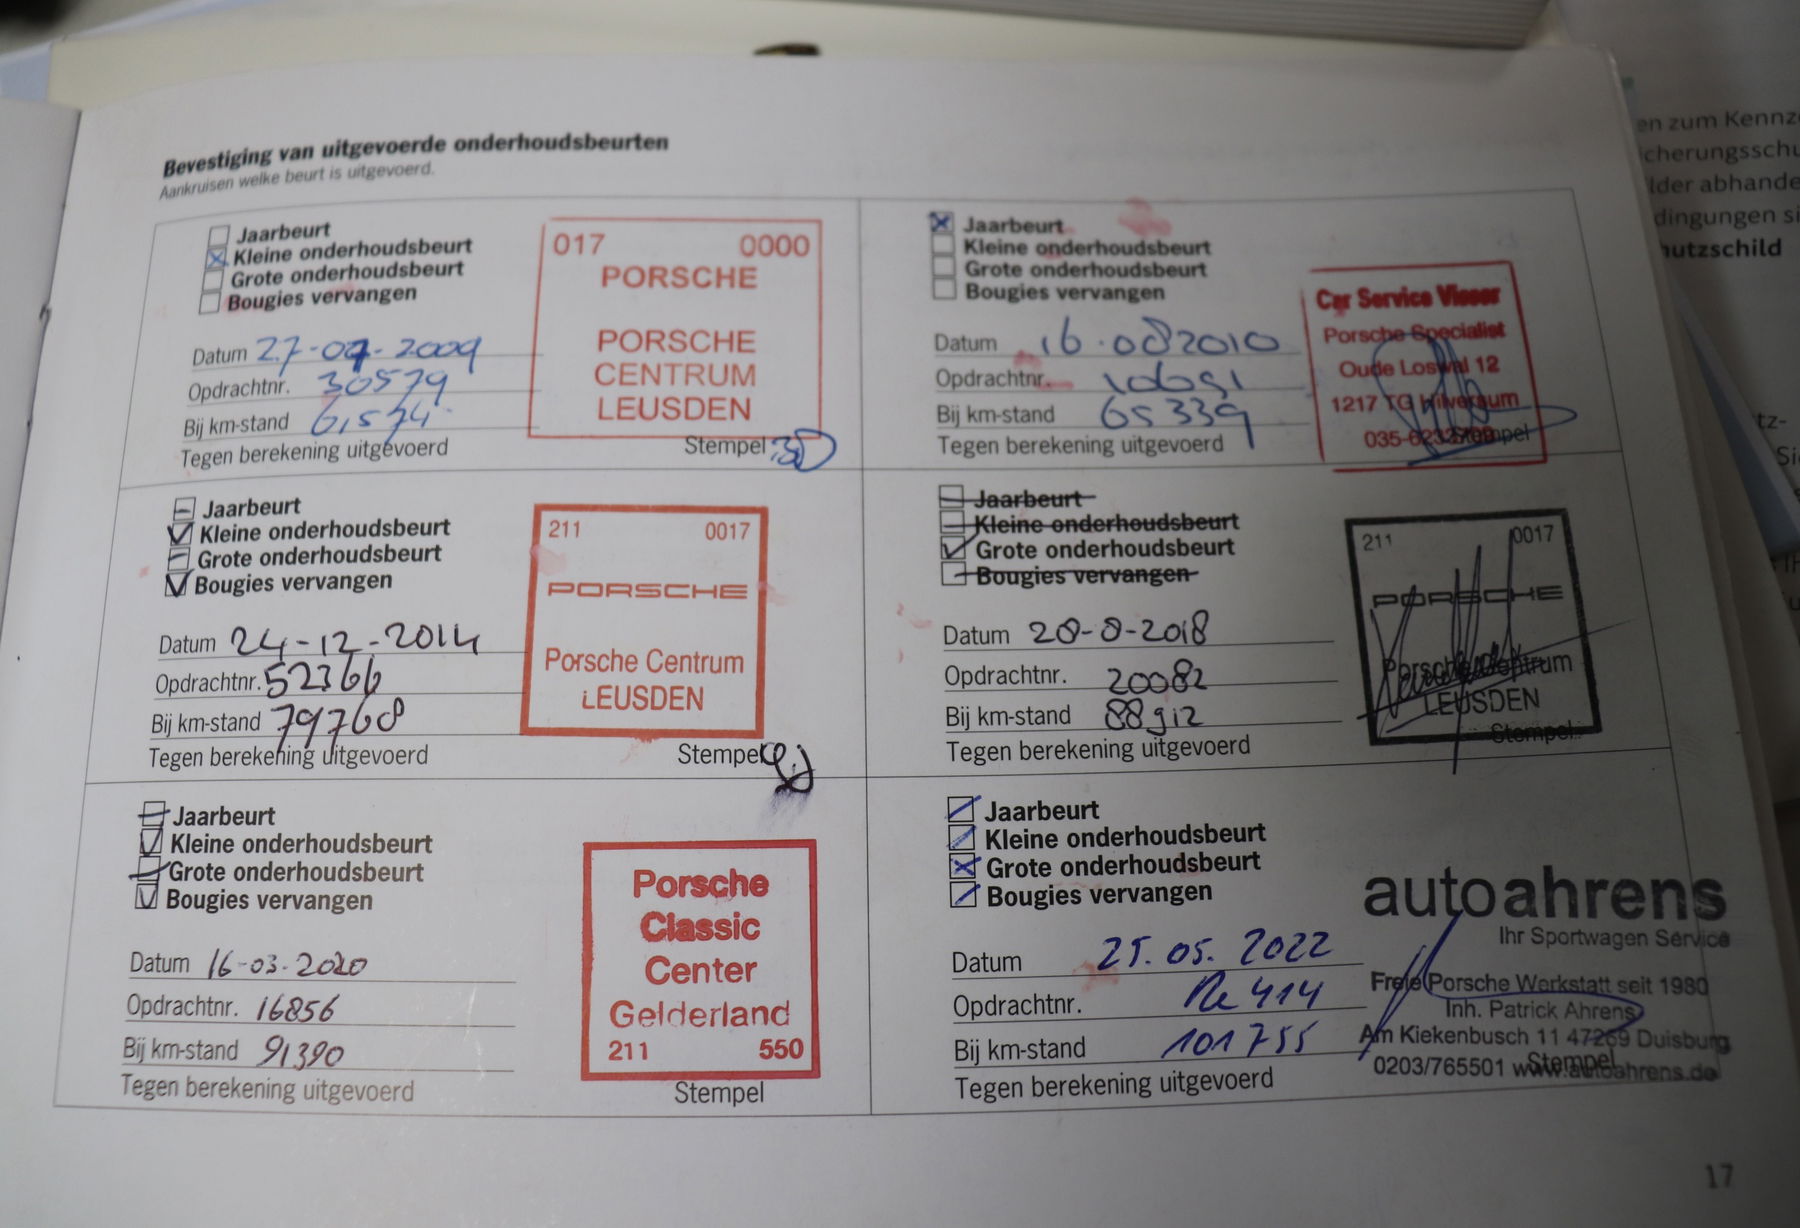 Bevestiging van uitgevoerde onderhoudsbeurten
Aankruisen welke beurt is uitgevoerd.
Jaarbeurt
Kleine onderhoudsbeurt
Grote onderhoudsbeurt
Bougies vervangen
Datum 27-07-2009
Opdrachtnr. 30579
Bij km-stand 61574
Tegen berekening uitgevoerd
017 0000
PORSCHE
PORSCHE
CENTRUM
LEUSDEN
Stempel
Jaarbeurt
Kleine onderhoudsbeurt
Grote onderhoudsbeurt
Bougies vervangen
Datum 16.08 2010
Opdrachtnr.
Bij km-stand 65339
Tegen berekening uitgevoerd
Car Service Visser
Porsche Specialist
Oude Loswal 12
1217 TG Hilversum
035-
Stempel
Jaarbeurt
Kleine onderhoudsbeurt
Grote onderhoudsbeurt
Bougies vervangen
Datum 24-12-2014
Opdrachtnr. 52366
Bij km-stand 79768
Tegen berekening uitgevoerd
211 0017
PORSCHE
Porsche Centrum
LEUSDEN
Stempel
Jaarbeurt
Kleine onderhoudsbeurt
Grote onderhoudsbeurt
Bougies vervangen
Datum 28-8-2018
Opdrachtnr. 20082
Bij km-stand 88912
Tegen berekening uitgevoerd
211 0017
PORSCHE
Porsche Centrum
LEUSDEN
Stempel
Jaarbeurt
Kleine onderhoudsbeurt
Grote onderhoudsbeurt
Bougies vervangen
Datum 16-03-2020
Opdrachtnr. 16856
Bij km-stand 91390
Tegen berekening uitgevoerd
Porsche
Classic
Center
Gelderland
211 550
Stempel
Jaarbeurt
Kleine onderhoudsbeurt
Grote onderhoudsbeurt
Bougies vervangen
Datum 25.05.2022
Opdrachtnr. Re 414
Bij km-stand 101755
Tegen berekening uitgevoerd
autoahrens
Ihr Sportwagen Service
Freie Porsche Werkstatt seit 1980
Inh. Patrick Ahrens
Am Kiekenbusch 11 47269 Duisburg
0203/765501 www.autoahrens.de
Stempel
17
en zum Kennz
icherungsschu
lder abhande
dingungen si
hutzschild
tz-